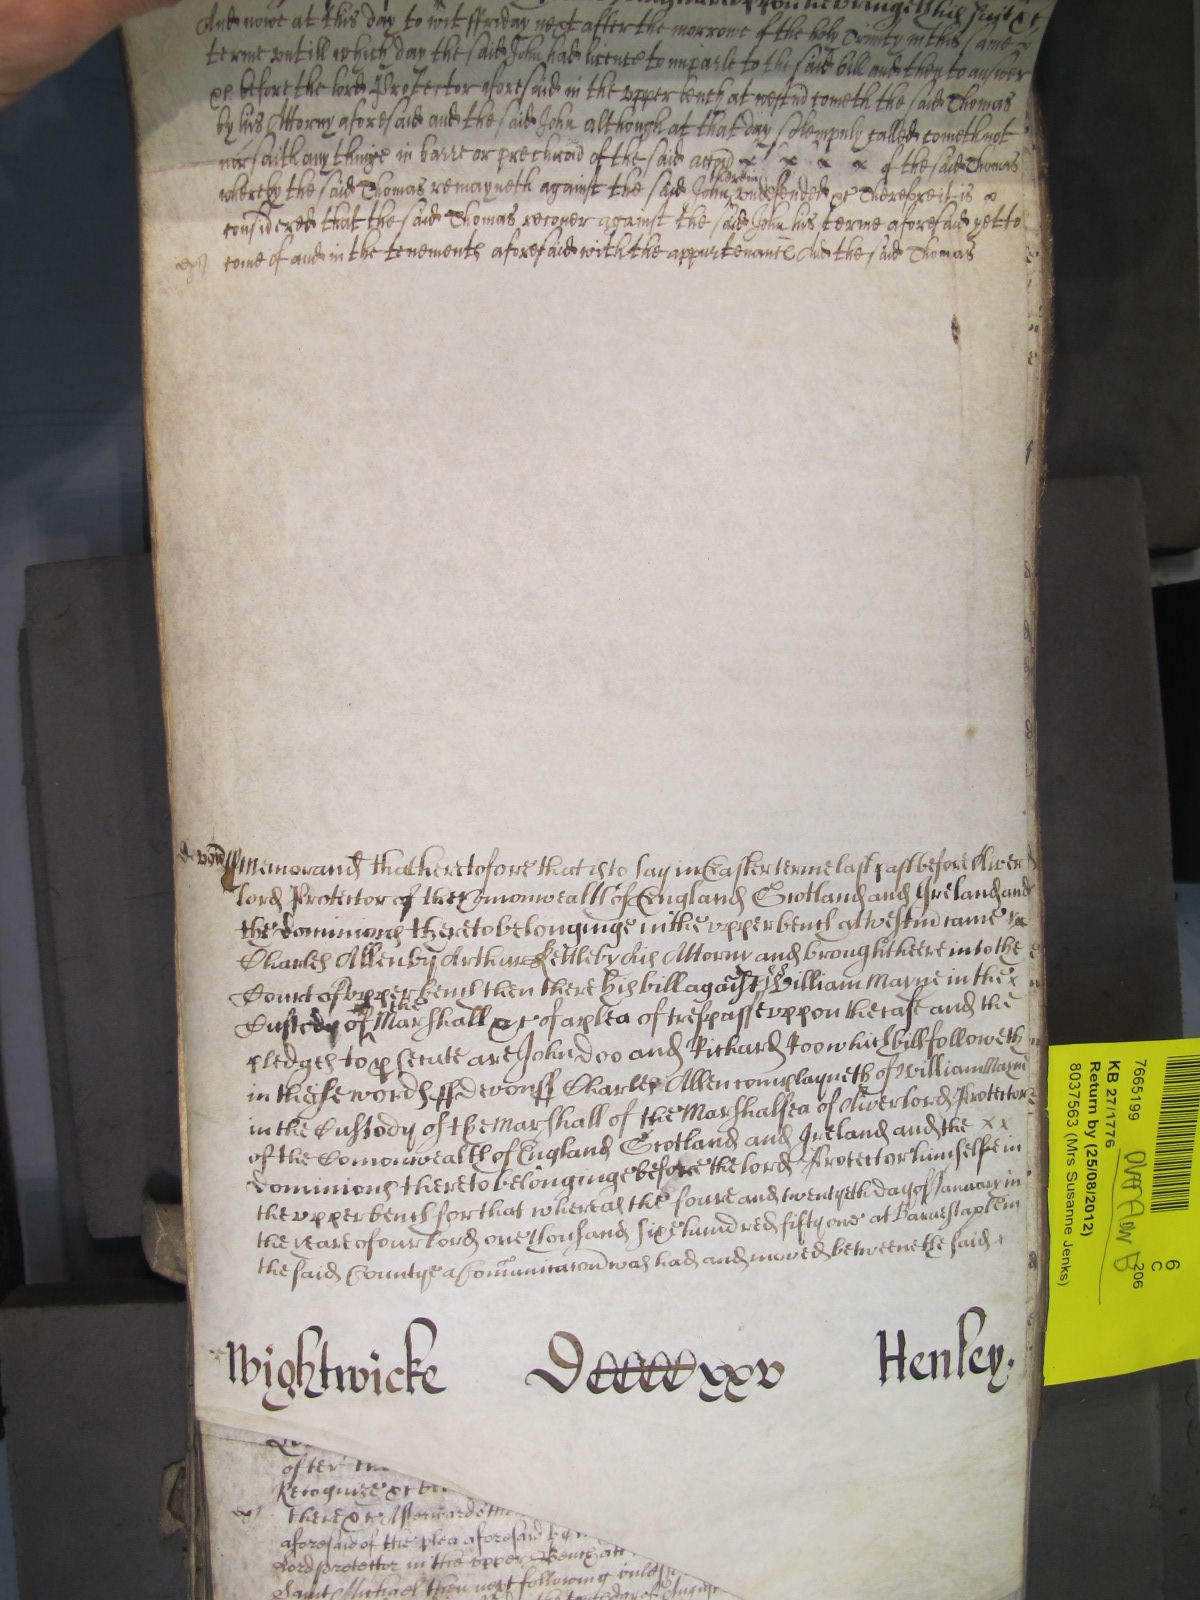 And nowe at this day to wit ffriday next after the morrowe of the holy Trinity in this same x
terme untill which day the said John had licence to imparle to the said bill and then to answer
&c before the lord Protector aforesaid in the upper bench at westm cometh the said Thomas
by his Attorny aforesaid and the said John although at that day solempnly called cometh not
nor saith any thinge in barre or precluc͠on of the said acc͠on x x x x of the said Thomas
whereby the said Thomas remayneth against the said John therein undefended &c Therefore it is x
considered that the said Thomas recover against the said John his terme aforesaid yet to
come of and in the tenements aforesaid with the appurtenances And the said Thomas
Devon ss Memorand that heretofore that is to say in Easter terme last past before Oliver
lord Protector of the Comonwealth of England Scotland and Ireland and
the dominions thereto belonginge in the upper bench at westm came x
Charles Allen by Arthur Kettleby his Attorny and brought heere into the
Court of upper bench then there his bill against William Mayne in the x
Custody of the Marshall &c of a plea of trespasse uppon the case and the
pledges to prosecute are John Doo and Richard Roo which bill followeth
in theise words ss Devon ss Charles Allen complayneth of William Mayne
in the Custody of the Marshall of the Marshalsea of Oliver lord Protector
of the Comonwealth of England Scotland and Ireland and the x x
dominions thereto belonginge before the lord Protector himselfe in
the upper bench for that whereas the foure and twentyeth day of January in
the yeare of our lord one thousand six hundred fifty one at Barnestaple in
the said County a Comunicac͠on was had and moved betweene the said x
Wightwicke DCCCCxxv Henley.
after
Recognize &c
there &c Afterwards
aforesaid of the plea aforesaid
Lord protector in the upper Bench att
Saint Michael then next following unlesse
7665199
KB 27/1776
Return by (25/08/2012)
8037563 (Mrs Susanne Jenks)
6
C
206